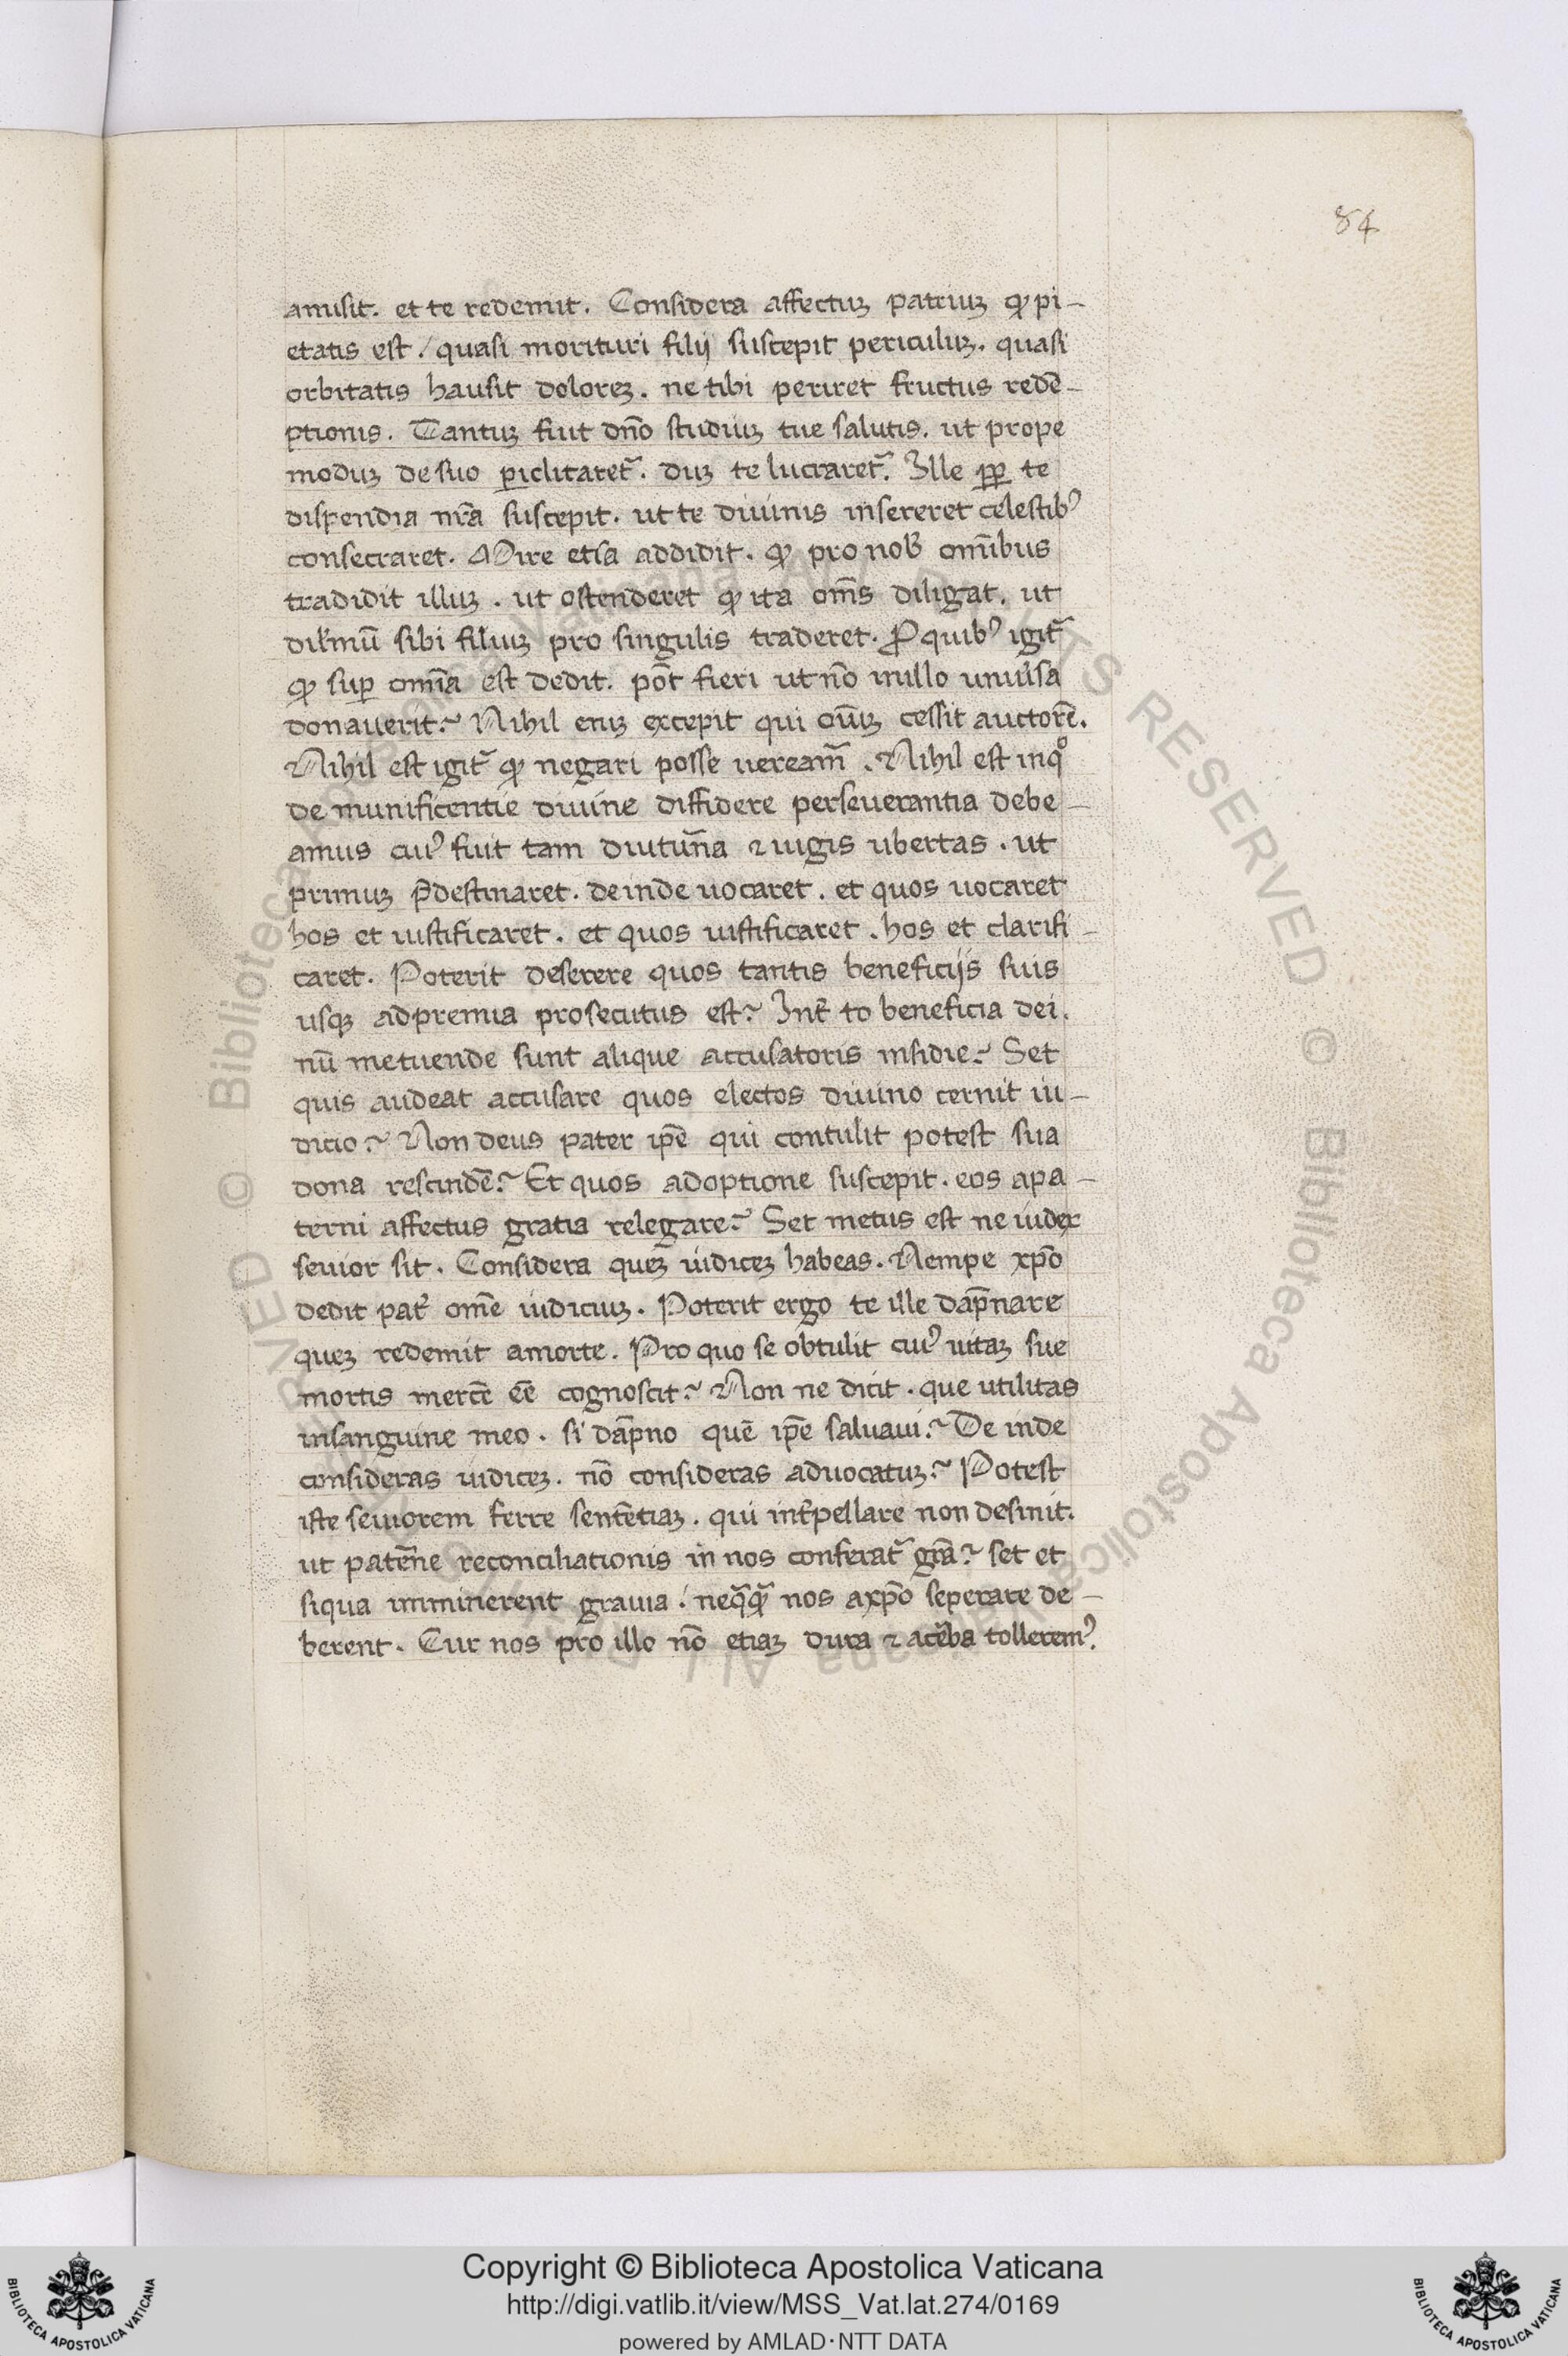 84
amisit. et te redemit. Considera affectuʒ patriuʒ qđ pi-
etatis est / quasi morituri filij suscepit periculuʒ. quasi
orbitatis hausit doloreʒ. ne tibi periret fructus redē-
ptionis. Tantuʒ fuit dn̄o studiuʒ tue salutis. ut prope
moduʒ de suo ꝑiclitaret᷑. duʒ te lucraret᷑. Ille ꝓꝑ te
dispendia nr̄a suscepit. ut te diuinis insereret celestibꝰ
consecraret. Mire etiā addidit. qđ pro nob̄ omībus
tradidit illuʒ. ut ostenderet qđ ita om̄s diligat. ut
dil̄mū sibi filiuʒ pro singulis traderet. Pro quibꝰ igit᷑
qđ suꝑ omīa est dedit. pōt fieri ut nō in illo uniūsa
donauerit? Nihil eniʒ excepit qui om̄iʒ cessit auctorē.
Nihil est igit᷑ qđ negari posse ueream᷑. Nihil est in qͦ
de munificentie diuine diffidere perseuerantia debe-
amus cuiꝰ fuit tam diutur̄na ⁊ iugis ubertas. ut
primuʒ p̄destinaret. deinde uocaret. et quos uocaret
hos et iustificaret. et quos iustificaret. hos et clarifi-
caret. Poterit deserere quos tantis beneficijs suis
usqʒ ad premia prosecutus est? Int̄ tο beneficia dei.
nū metuende sunt alique accusatoris insidie? Set
quis audeat accusare quos electos diuino cernit iu-
dicio? Non deus pater ip̄e qui contulit potest sua
dona rescindē? Et quos adoptione suscepit. eos a pa-
terni affectus gratia relegare? Set metus est ne iudex
seuior sit. Considera queʒ iudiceʒ habeas. Nempe xp̄o
dedit pat̄ om̄e iudiciuʒ. Poterit ergo te ille dāpnare
queʒ redemit a morte. Pro quo se obtulit cuiꝰ uitaʒ sue
mortis mercē eē cognoscit? Non ne dicit. que utilitas
in sanguine meo. si dāpno quē ip̄e saluaui? De inde
consideras iudiceʒ. nō consideras aduocatuʒ? Potest
iste seuiorem ferre sentētiaʒ. qui int̄pellare non desinit.
ut patērne reconciliationis in nos conferat᷑ grā? set et
siqua imminerent grauia / neq̄q̄ nos a xp̄o seperare de-
berent. Cur nos pro illo nō etiaʒ dura ⁊ acēba tolleremꝰ.
Copyright © Biblioteca Apostolica Vaticana
http://digi.vatlib.it/view/MSS_Vat.lat.274/0169
powered by AMLAD·NTT DATA